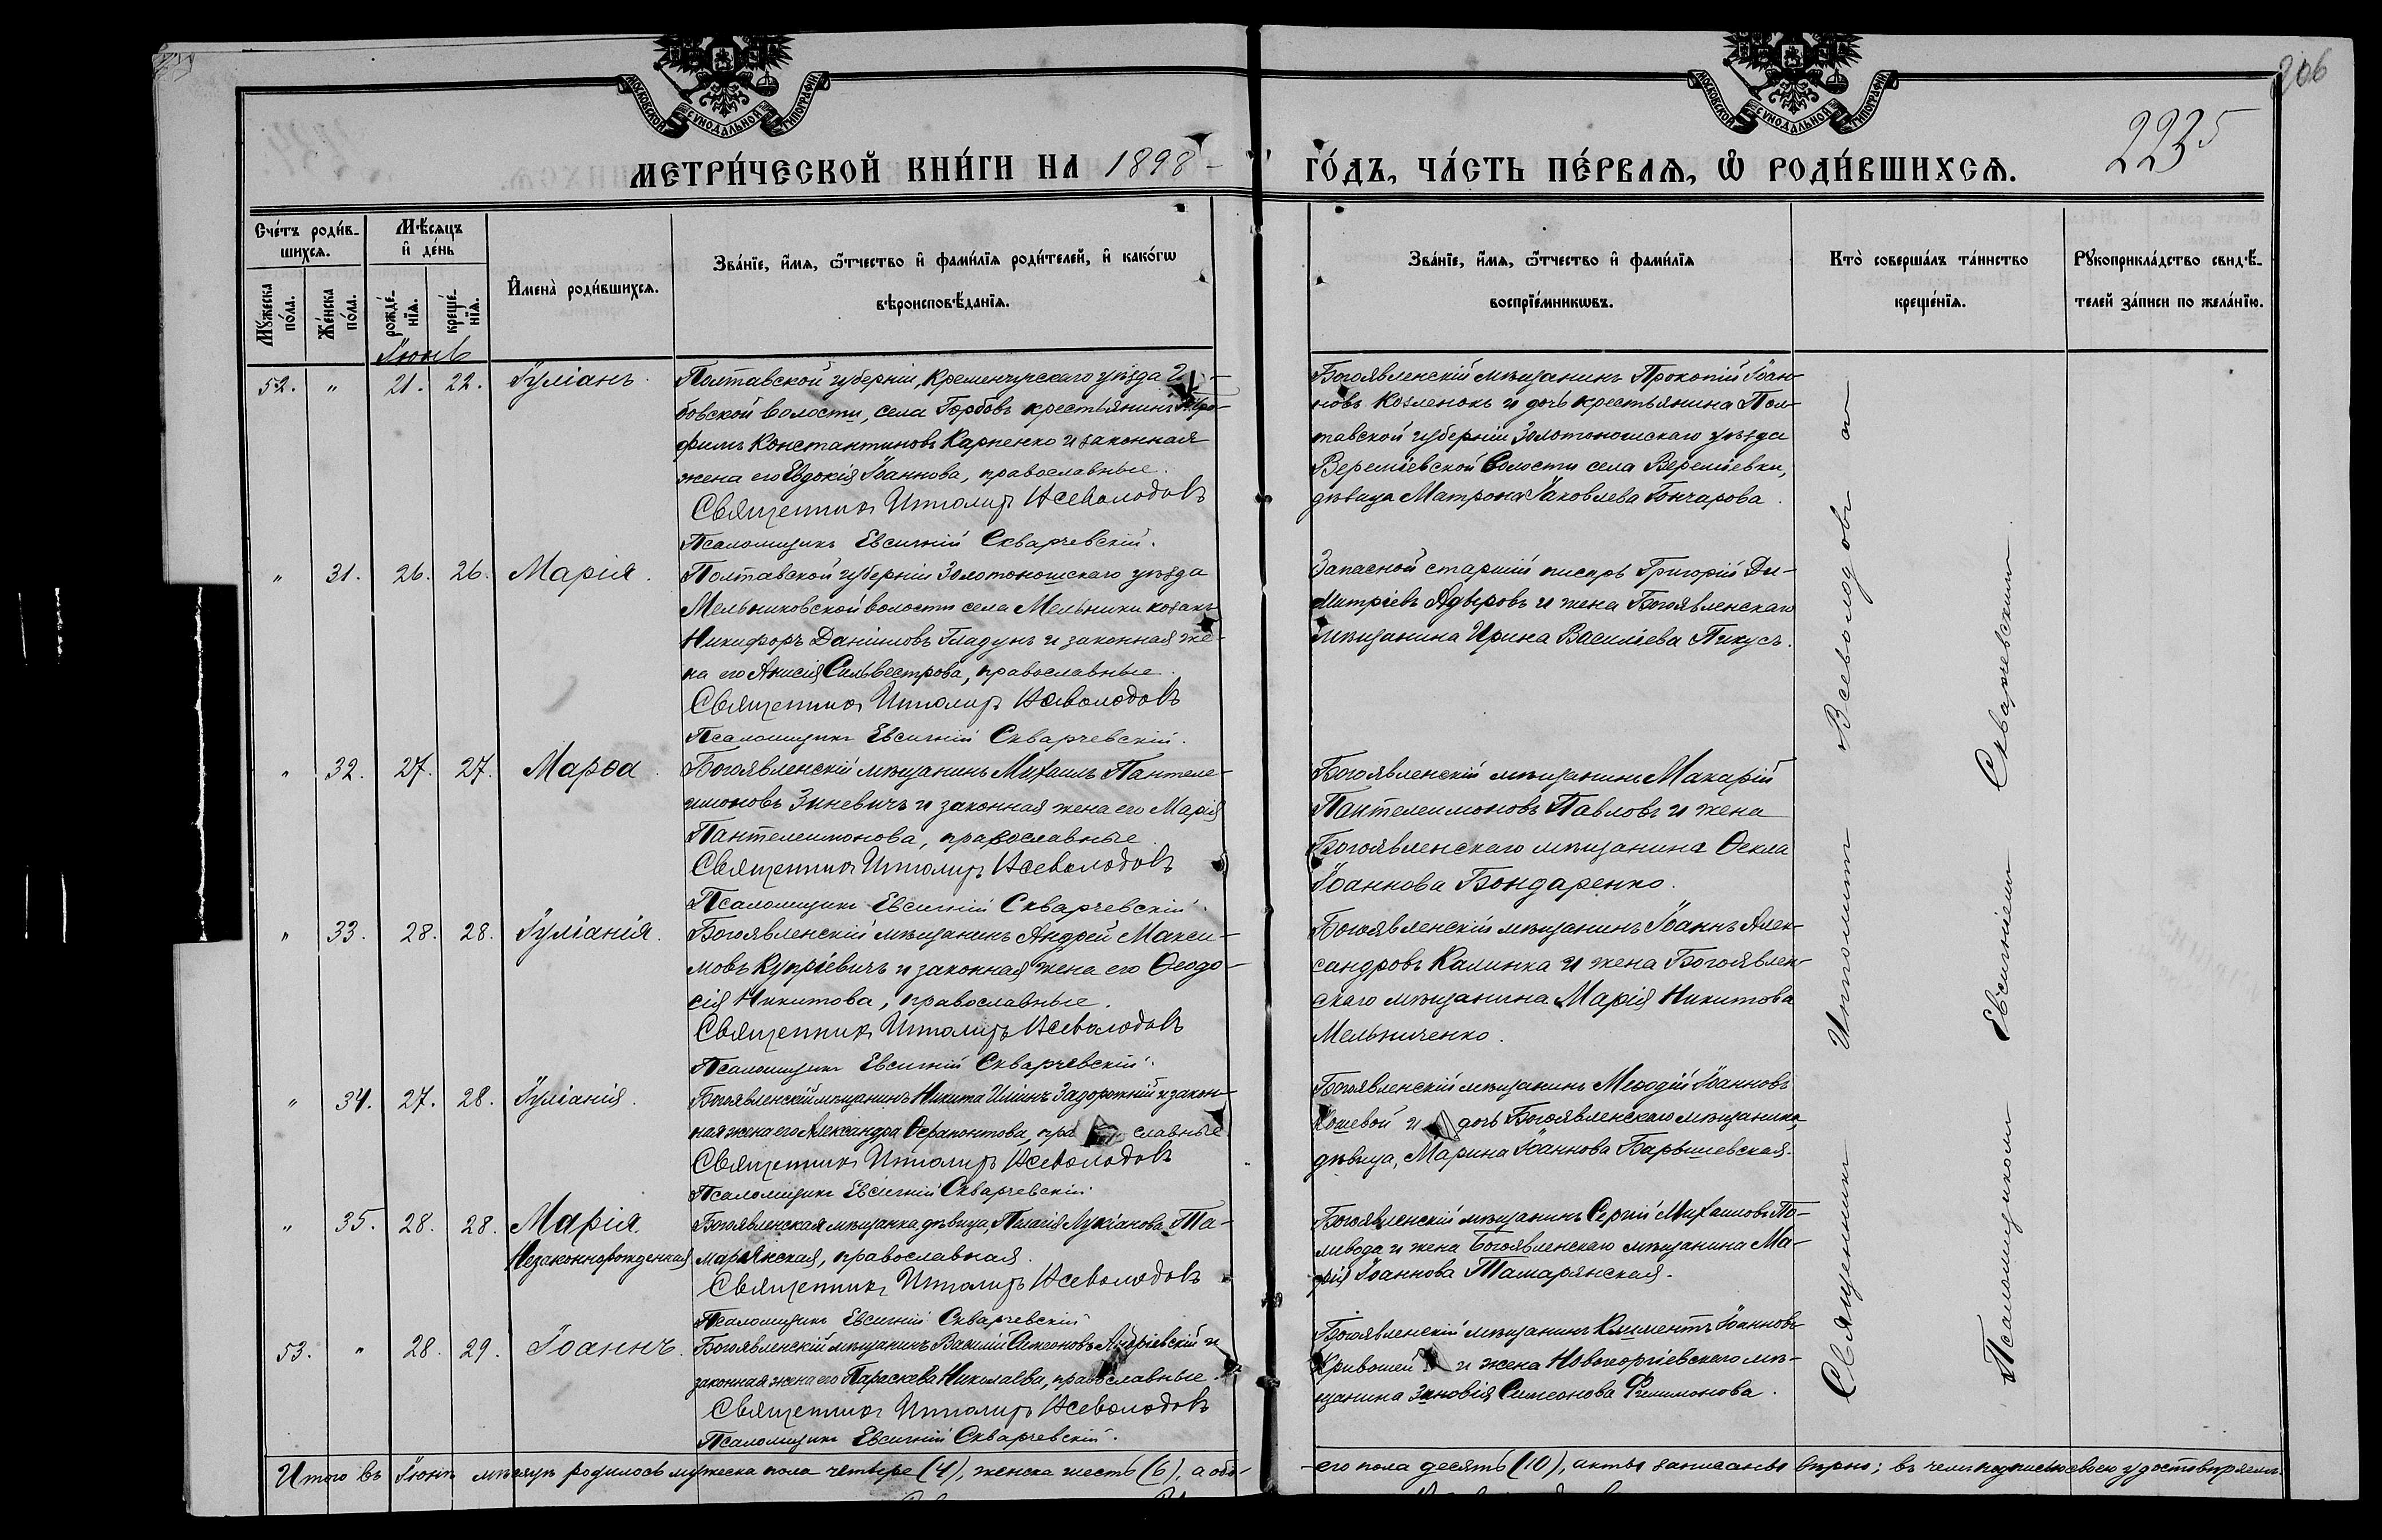 206
2235
МОСКОВСКОЙ СѴНОДАЛЬНОЙ ТИПОГРАФІИ
МОСКОВСКОЙ СѴНОДАЛЬНОЙ ТИПОГРАФІИ
МЕТРИ́ЧЕСКОЙ КНИ́ГИ НА 1898 ГО́ДЪ, ЧА́СТЬ ПЕ́РВАѦ, Ѿ РОДИ́ВШИХСѦ.
Сче́тъ роди́в-
шихсѧ.
Мꙋжеска по́ла.
Же́нска по́ла.
Мѣ́сяцъ
и҆ де́нь
рожде́-
нїѧ.
креще́-
нїѧ.
И҆мена̀ роди́вшихсѧ.
Зва́нїе, и҆́мѧ, ѻ҆́тчество и҆ фами́лїѧ роди́телей, и҆ како́гѡ
вѣроисповѣ́данїѧ.
Зва́нїе, и҆́мѧ, ѻ҆́тчество и҆ фами́лїѧ
воспрїе́мникѡвъ.
Кто̀ соверша́лъ та́инство
креще́нїѧ.
Рꙋкоприкла́дство свидѣ́-
телей за́писи по жела́нїю.
Іюнь
52. " 21. 22. Іуліанъ.
Полтавской губерніи, Кременчугскаго уѣзда
бовской волости, села Горбовъ крестьянинъ
фимъ Константиновъ Карпенко и законная
жена его Евдокія Іоаннова, православные.
Священникъ Ипполитъ Всеволодовъ
Псаломщикъ Евсигній Скварчевскій.
Богоявленскій мѣщанинъ Прокопій Іоан-
новъ Козленокъ и дочь крестьянина Пол-
тавской губерніи Золотоношскаго уѣзда
Вереміевской волости села Вереміевки,
дѣвица Матрона Іаковлева Гончарова.
" 31. 26. 26. Марія.
Полтавской губерніи Золотоношскаго уѣзда
Мельниковской волости села Мельники козакъ
Никифоръ Даніиловъ Гладунъ и законная же-
на его Анисія Сильвестрова, православные.
Священникъ Ипполитъ Всеволодовъ
Псаломщикъ Евсигній Скварчевскій.
Запасной старшій писарь Григорій Ди-
митріевъ и жена Богоявленскаго
мѣщанина Ирина Василіева Пикусъ.
" 32. 27. 27. Марѳа.
Богоявленскій мѣщанинъ Михаилъ Пантеле-
имоновъ Зиневичъ и законная жена его Марія
Пантелеимонова, православные.
Священникъ Ипполитъ Всеволодовъ
Псаломщикъ Евсигній Скварчевскій.
Богоявленскій мѣщанинъ Макарій
Пантелеимоновъ Павловъ и жена
Богоявленскаго мѣщанина Ѳекла
Іоаннова Бондаренко.
" 33. 28. 28. Іуліанія.
Богоявленскій мѣщанинъ Андрей Макси-
мовъ Купріевичъ и законная жена его Ѳеодо-
сія Никитова, православные.
Священникъ Ипполитъ Всеволодовъ
Псаломщикъ Евсигній Скварчевскій.
Богоявленскій мѣщанинъ Іоаннъ Алек-
сандровъ Калинка и жена Богоявлен-
скаго мѣщанина Марія Никитова
Мельниченко.
" 34. 27. 28. Іуліанія.
Богоявленскій мѣщанинъ Никита Иліинъ Задорожній и закон-
ная жена его Александра Ѳерапонтова, пра славные
Священникъ Ипполитъ Всеволодовъ
Псаломщикъ Евсигній Скварчевскій
Богоявленскій мѣщанинъ Меѳодій Іоанновъ
Кошевой и дочь Богоявленскаго мѣщанина,
дѣвица, Марина Іоаннова Барышевская.
" 35. 28. 28. Марія.
Незаконнорожденная
Богоявленская мѣщанка, дѣвица, Пелагія Лукіанова Та-
марянская, православная.
Священникъ Ипполитъ Всеволодовъ
Псаломщикъ Евсигній Скварчевскій
Богоявленскій мѣщанинъ Сергій Михаиловъ По-
ливода и жена Богоявленскаго мѣщанина Ма-
рія Іоаннова Тамарянская.
53. " 28. 29. Іоаннъ.
Богоявленскій мѣщанинъ Василій Симеоновъ Андріевскій и
законная жена его Параскева Николаева, православные.
Священникъ Ипполитъ Всеволодовъ
Псаломщикъ Евсигній Скварчевскій.
Богоявленскій мѣщанинъ Климентъ Іоанновъ
Кривошей и жена Новогеоргіевскаго мѣ-
щанина Зиновія Симеонова Филимонова.
Священникъ Ипполитъ Всеволодовъ съ
Псаломщикомъ Евсигніемъ Скварчевскимъ
Итого въ Іюнѣ мѣсяцѣ родилось мужеска пола четыре (4), женска шесть (6), а обо-
его пола десять (10), акты записаны вѣрно; въ чемъ подписью своею удостовѣряемъ.